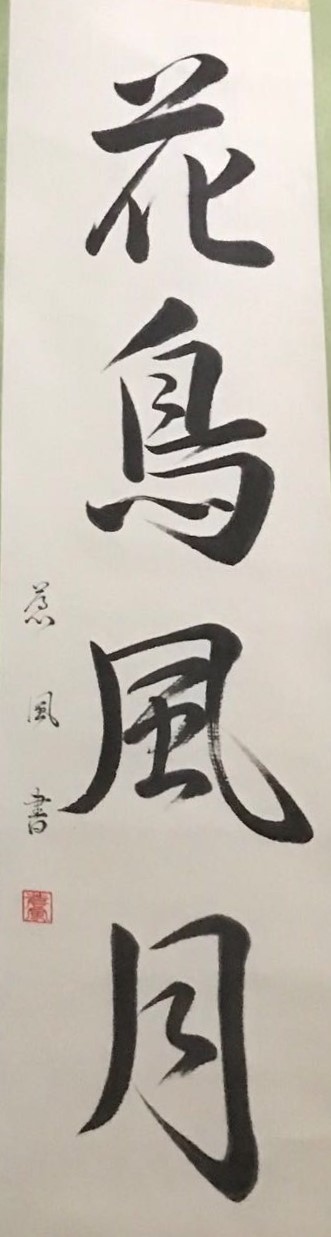 花鳥風月
蕙風書